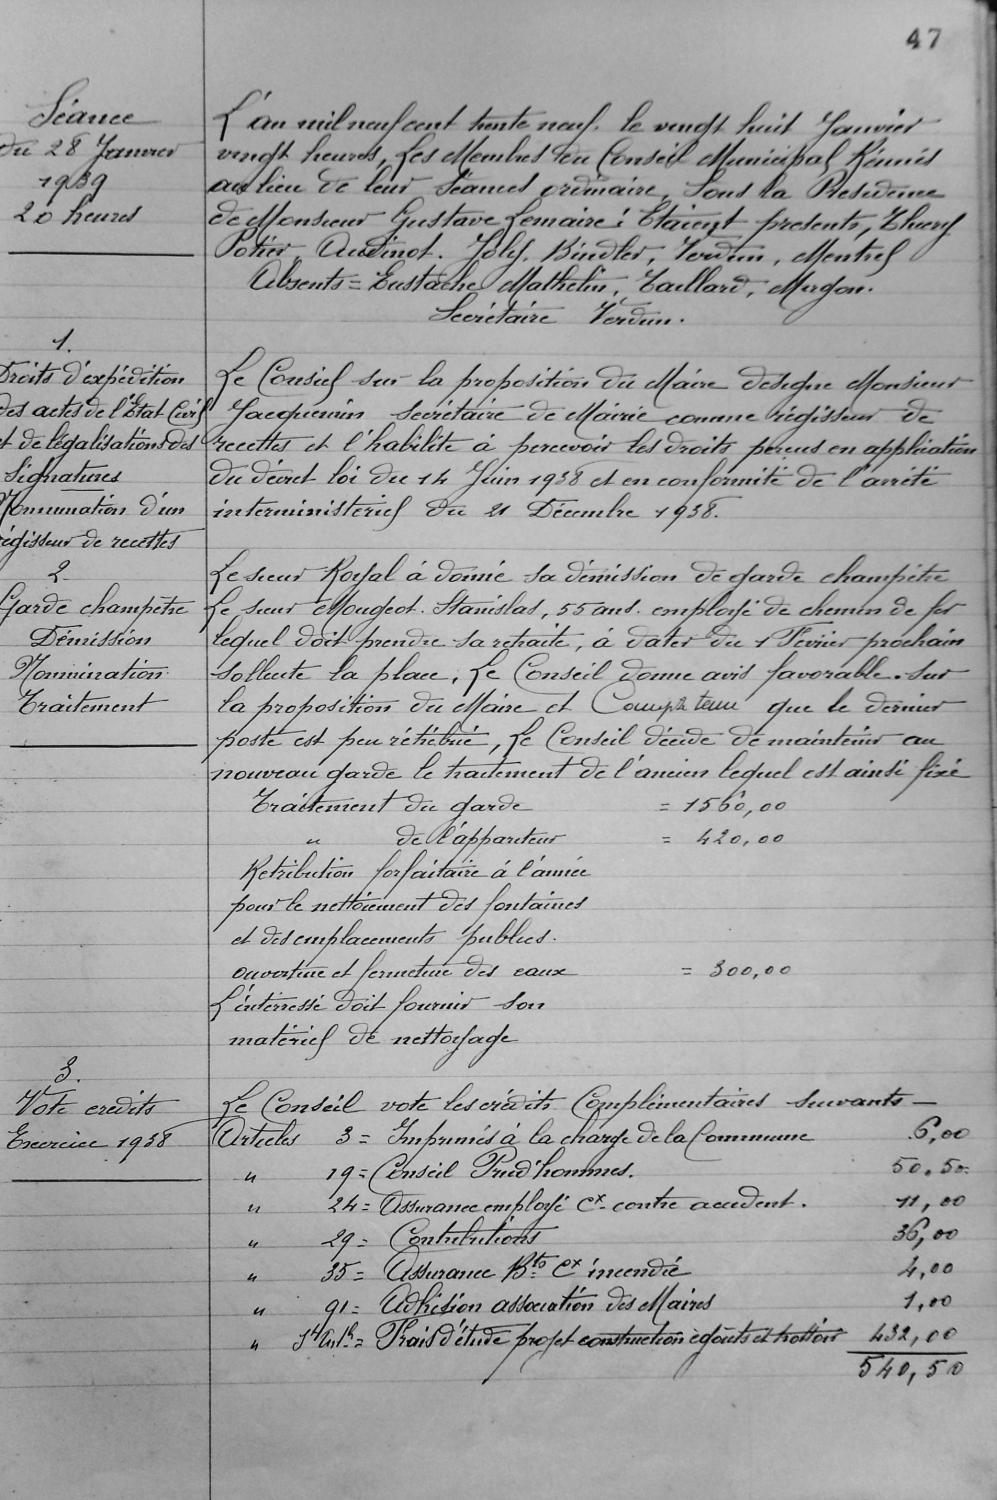 47
Séance
du 28 Janvier
1939
20 heures
L'an mil neuf cent trente neuf. le vingt huit Janvier
vingt heures, Les Membres du Conseil Municipal Réunis
au lieu de leur Séances ordinaire, Sous la Présidence
de Monsieur Gustave Lemaire: Etaient presents, Thiery
Potier, Audinot. Joly, Bindler, Verdun, Mentrel
Absents = Eustache Mathelin, Taillard, Mugon.
Secrétaire Verdun.
1.
Droits d'expédition
des actes de l'Etat Civil
et de légalisations des
Signatures
Nomination d'un
régisseur de recettes
Le Conseil sur la proposition du Maire designe Monsieur
Jacquemin secrétaire de Mairie comme régisseur de
recettes et l'habilite à percevoir les droits perçus en application
du décret loi du 14 Juin 1938 et en conformité de l'arrêté
interministériel du 21 Décembre 1938.
2
Garde champêtre
Démission
Nomination
Traitement
Le sieur Royal à donné sa démission de garde champêtre
Le sieur Mougeot. Stanislas, 55 ans. employé de chemin de fer
lequel doit prendre sa retraite, à dater du 1 Février prochain
sollicite la place, Le Conseil donne avis favorable. sur
la proposition du Maire et Compte tenu que le dernier
poste est peu rétribué, Le Conseil décide de maintenir au
nouveau garde le traitement de l'ancien lequel est ainsi fixé
Traitement du garde = 1560,00
" de l'appariteur = 420,00
Retribution forfaitaire à l'année
pour le nettoiement des fontaines
et des emplacements publics.
ouverture et fermeture des eaux = 300,00
L'intéressé doit fournir son
matériel de nettoyage
3.
Vote credits
Exercice 1938
Le Conseil vote les crédits Complémentaires suivants -
Articles 3 = Imprimés à la charge de la Commune 6,00
" 19 = Conseil Prud'hommes. 50.50
" 24 = Assurance employé Cx contre accident. 11,00
" 29 = Contributions 36,00
" 35 = Assurance Bts Cx incendie 4,00
" 91 = Adhésion association des Maires 1,00
" = Frais d'étude projet construction égouts et trottoir 432,00
540,50